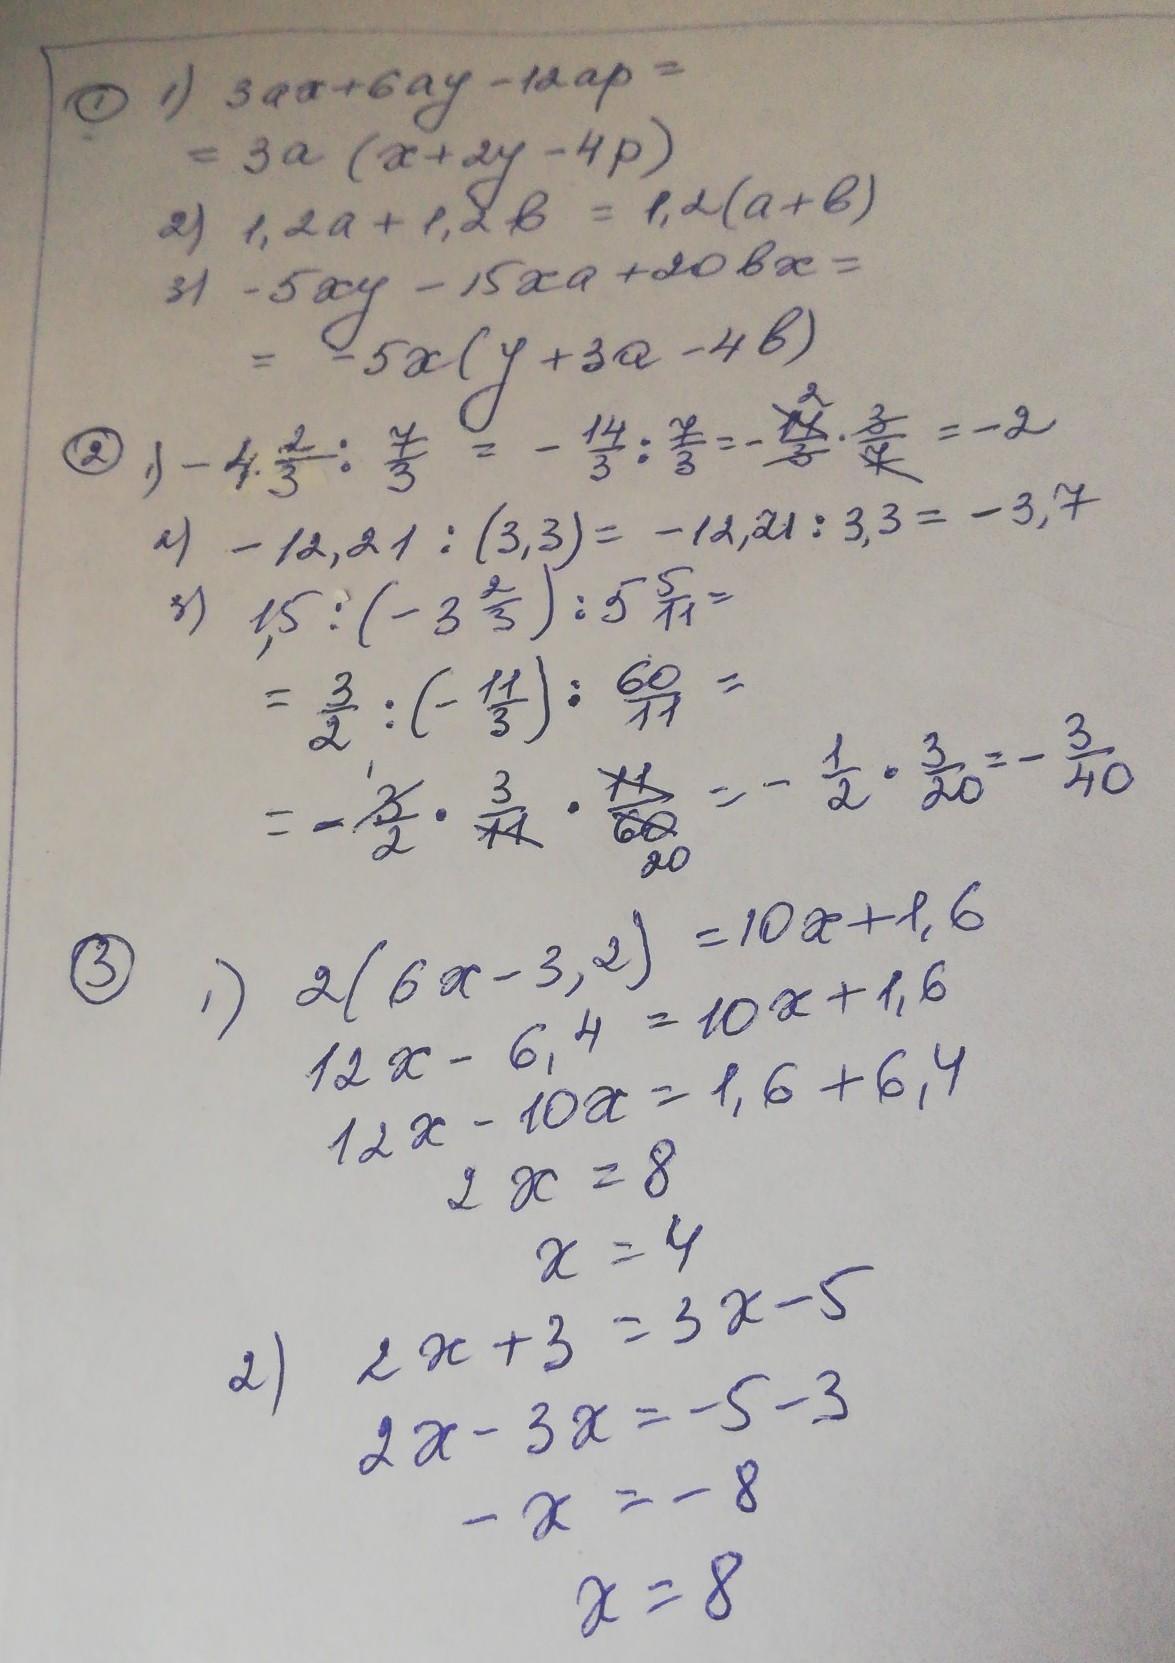 ① 1) 3ax+6ay-12ap=
= 3a (x+2y-4p)
2) 1,2a+1,2b = 1,2(a+b)
3) -5xy-15xa+20bx=
= -5x(y+3a-4b)
② 1) -4 2/3 : 7/3 = -14/3 : 7/3 = -14/3 · 3/7 = -2
2) -12,21 : (3,3) = -12,21 : 3,3 = -3,7
3) 1,5 : (-3 2/3) : 5 5/11 =
= 3/2 : (-11/3) : 60/11 =
= -3/2 · 3/11 · 11/60 = -1/2 · 3/20 = -3/40
③ 1) 2(6x-3,2) = 10x+1,6
12x-6,4 = 10x+1,6
12x-10x = 1,6+6,4
2x = 8
x = 4
2) 2x+3 = 3x-5
2x-3x = -5-3
-x = -8
x = 8